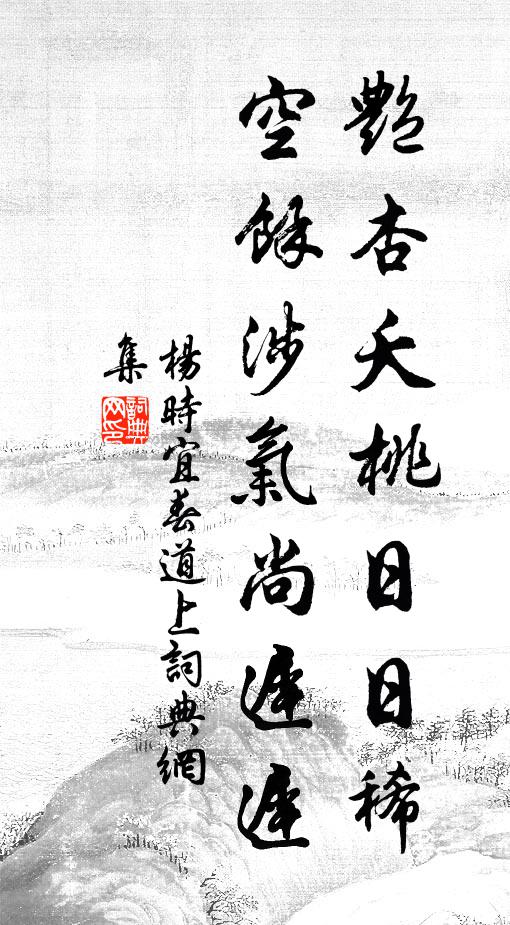 艷杏夭桃日日稀
空餘涉氣尚遲遲
楊時宜春道上詞典網
集
詞典網印